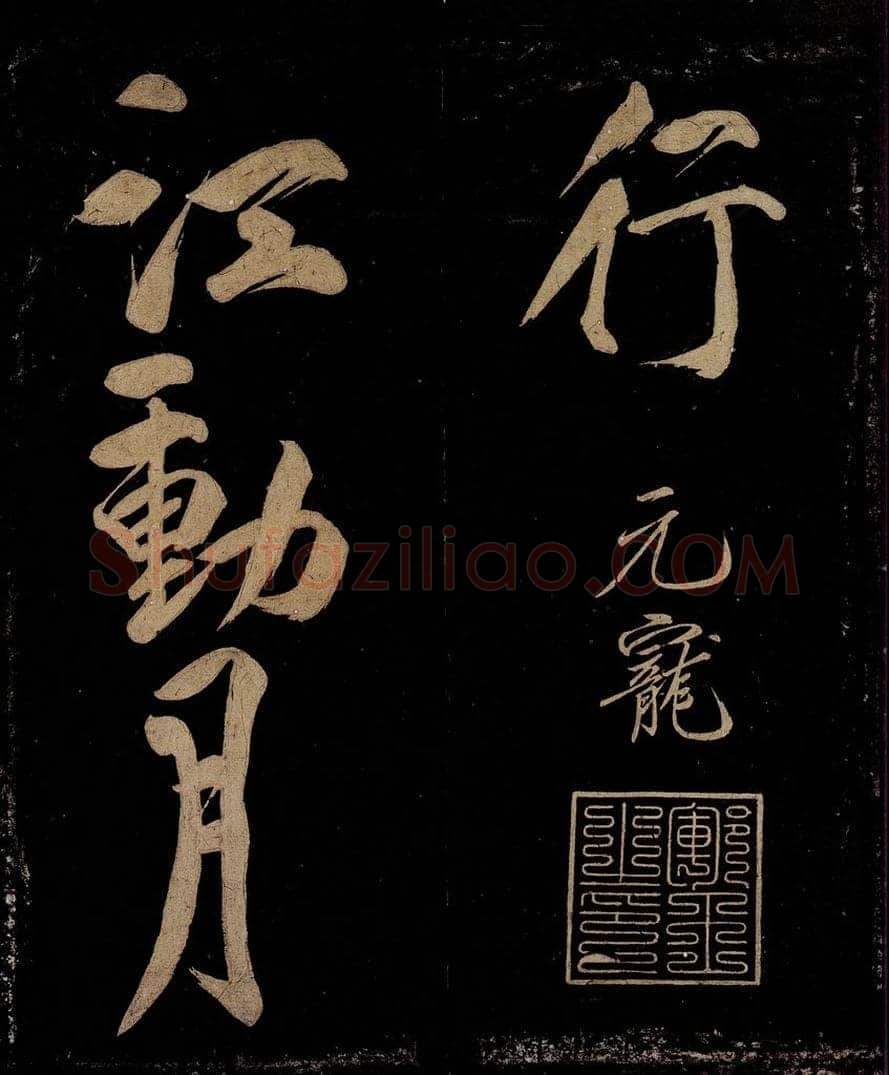 行
元寵
江動月
Shufaziliao.COM